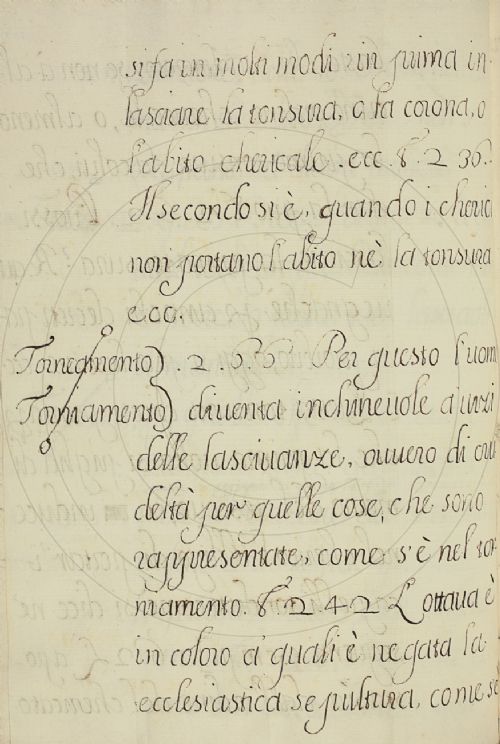 si fa in molti modi: in prima in
lasciare la tonsura, o la corona, o
l'abito chericale. ecc. 8. 2 36.
Il secondo si è, quando i cherici
non portano l'abito nè la tonsura
ecc.
Torneamento) . 2. 6. 6 Per questo l'uom
Torniamento) diventa inchinevole a vizi
delle lascivanze, ovvero di cru
deltà per quelle cose, che sono
rappresentate, come s'è nel tor
niamento. 8. 2 4 2 L'ottava è
in coloro a' quali è negata la
ecclesiastica sepultura, come se